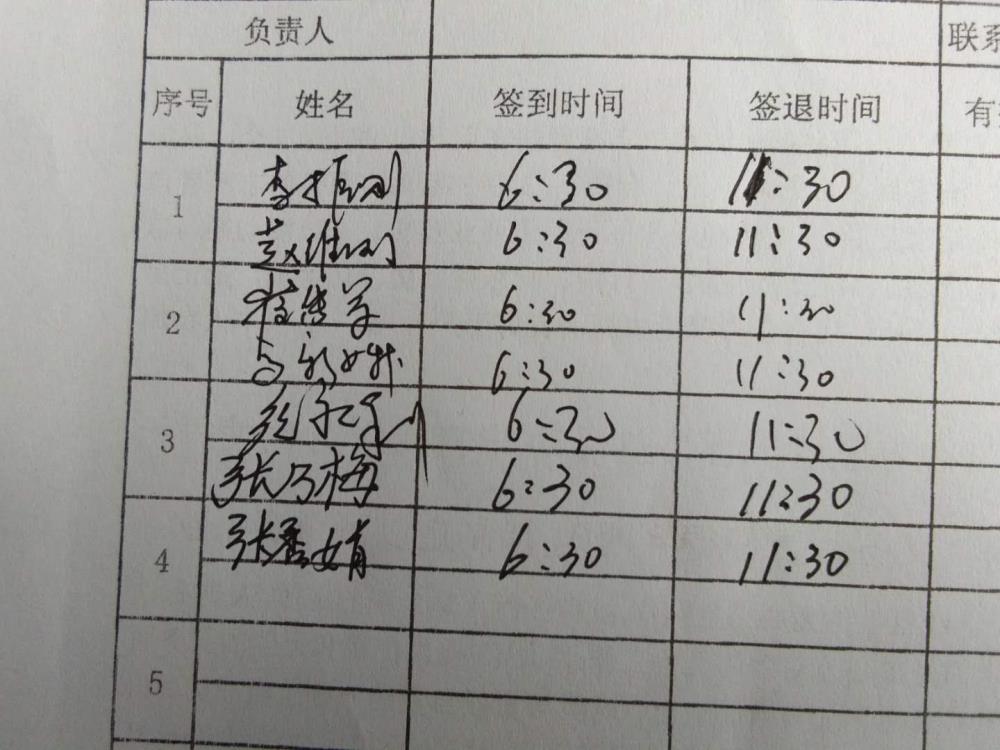 负责人 联系
序号 姓名 签到时间 签退时间 有
1 李振刚 6:30 11:30
赵维刚 6:30 11:30
2 6:30 11:30
6:30 11:30
3 6:30 11:30
张乃梅 6:30 11:30
4 张秀娟 6:30 11:30
5